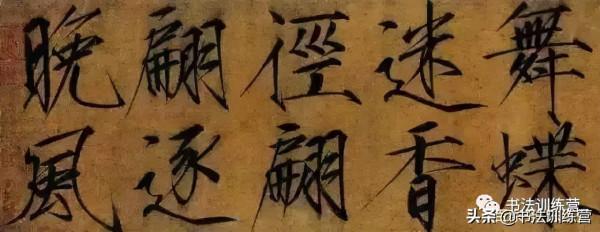 舞蝶
迷香
徑翩
翩逐
晚風
书法训练营
头条@书法训练营